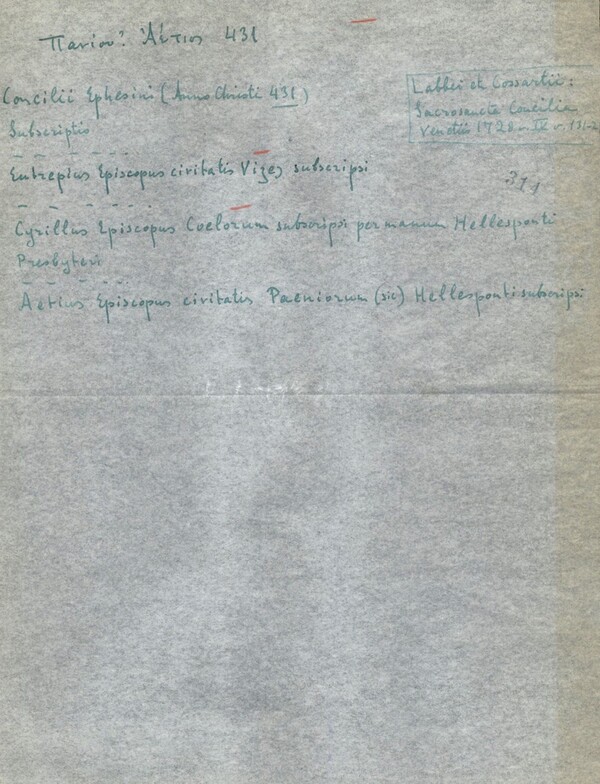 Πανίου: Ἀέτιος 431
Concilii Ephesini (Anno Christi 431)
Subscriptio
Labbei et Cossartii:
Sacrosancta Concilia
Venetii 1728
Eutrepius Episcopus civitatis Vizes subscripsi
311
Cyrillus Episcopus Coelorum subscripsi per manum Hellesponti
Presbyteri
Aetius Episcopus civitatis Paeniorum (sic) Hellesponti subscripsi